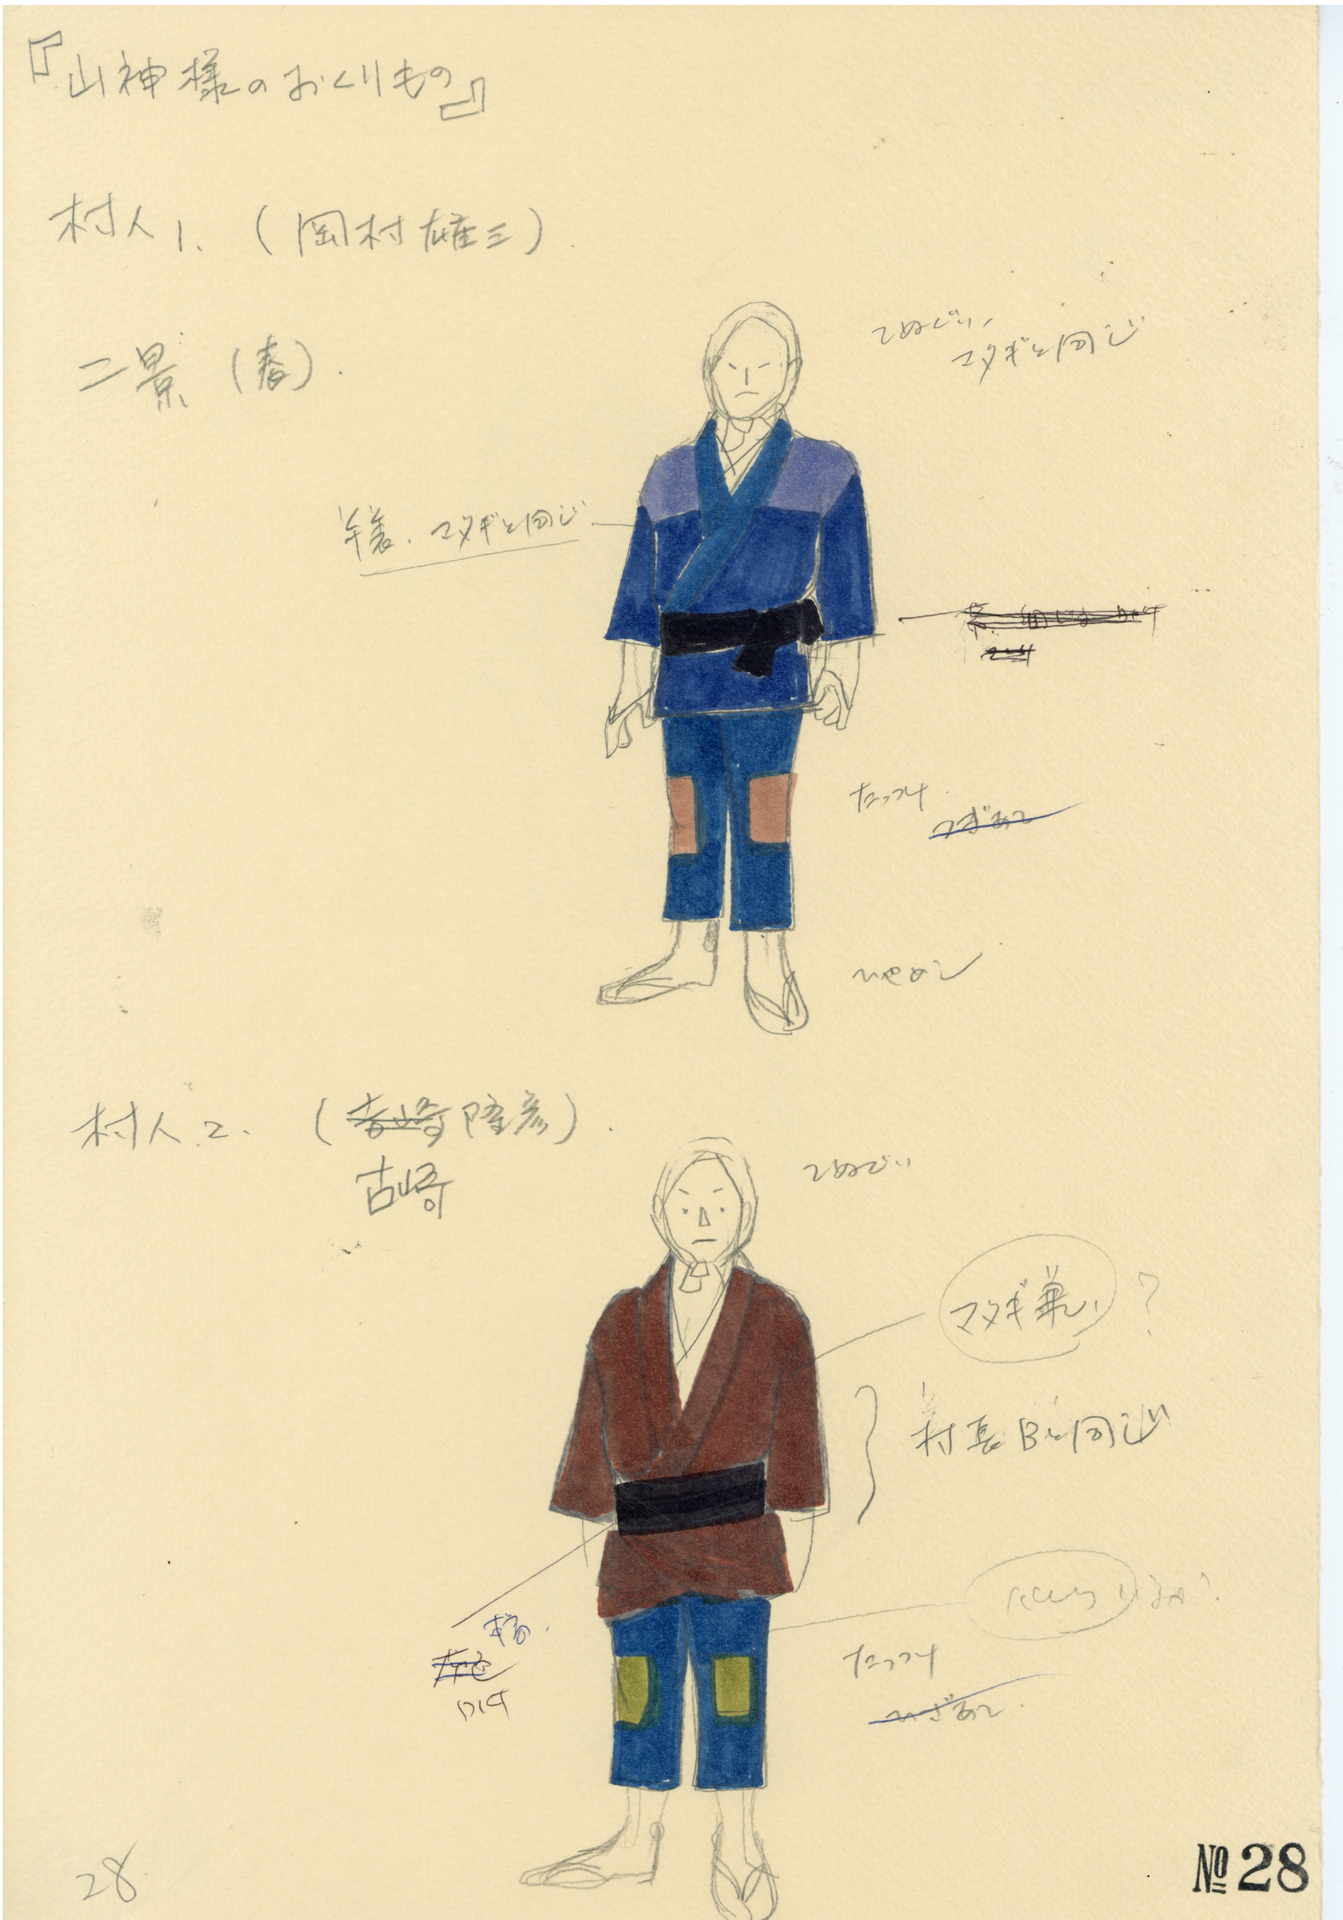 『山神様のおくりもの』
村人1.（岡村雄三）.
二景（春）.
てぬぐい、
マタギと同じ
半着、マタギと同じ
たっつけ
つぎあて
ひやめし
村人2.（吉崎隆彦）.
古崎
てぬぐい
マタギ兼 ?
村長Bと同じ
たっつけ
28
№28